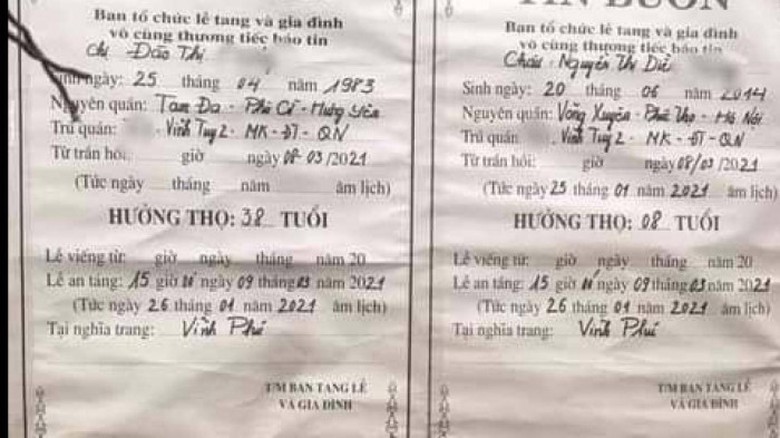 Ban tổ chức lễ tang và gia đình
vô cùng thương tiếc báo tin
Chị Đào Thị
Sinh ngày: 25 tháng 04 năm 1983
Nguyên quán: Tam Đa - Phù Cừ - Hưng Yên
Trú quán: Vĩnh Tuy 2 - MK - ĐT - QN
Từ trần hồi: giờ ngày 08-03/2021
(Tức ngày tháng năm âm lịch)
HƯỞNG THỌ: 38 TUỔI
Lễ viếng từ: giờ ngày tháng năm 20
Lễ an táng: 15 giờ ngày 09 tháng 03 năm 2021
(Tức ngày 26 tháng 01 năm 2021 âm lịch)
Tại nghĩa trang: Vĩnh Phú
T/M BAN TANG LỄ
VÀ GIA ĐÌNH
TIN BUỒN
Ban tổ chức lễ tang và gia đình
vô cùng thương tiếc báo tin
Cháu Nguyễn Thị
Sinh ngày: 20 tháng 06 năm 2014
Nguyên quán: Võng Xuyên - Phú Thọ - Hà Nội
Trú quán Vĩnh Tuy 2 - MK - ĐT - QN
Từ trần hồi: giờ ngày 08/03/2021
(Tức ngày 25 tháng 01 năm 2021 âm lịch)
HƯỞNG THỌ: 08 TUỔI
Lễ viếng từ: giờ ngày tháng năm 20
Lễ an táng: 15 giờ ngày 09 tháng 03 năm 2021
(Tức ngày 26 tháng 01 năm 2021 âm lịch)
Tại nghĩa trang: Vĩnh Phú
T/M BAN TANG LỄ
VÀ GIA ĐÌNH